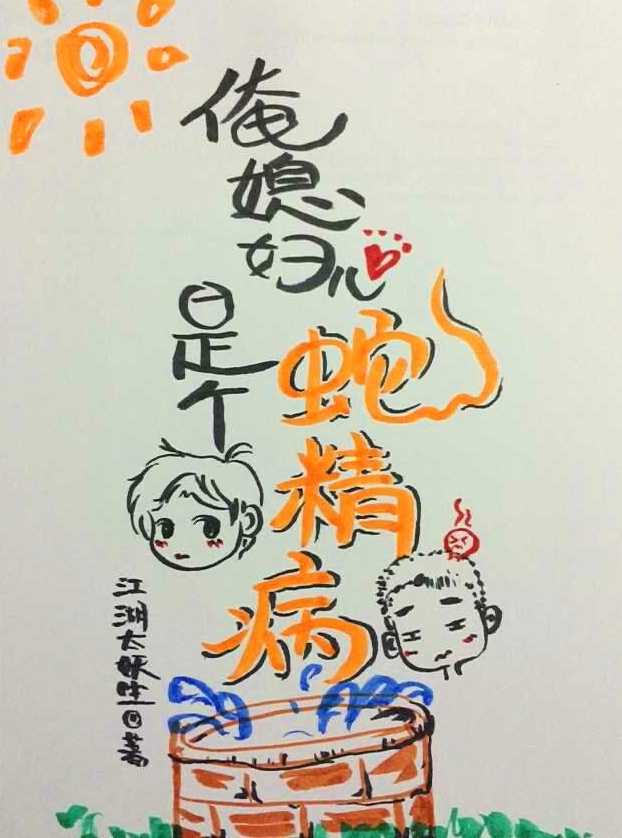 俺媳妇儿
是个
蛇精病
江湖太妖生回著